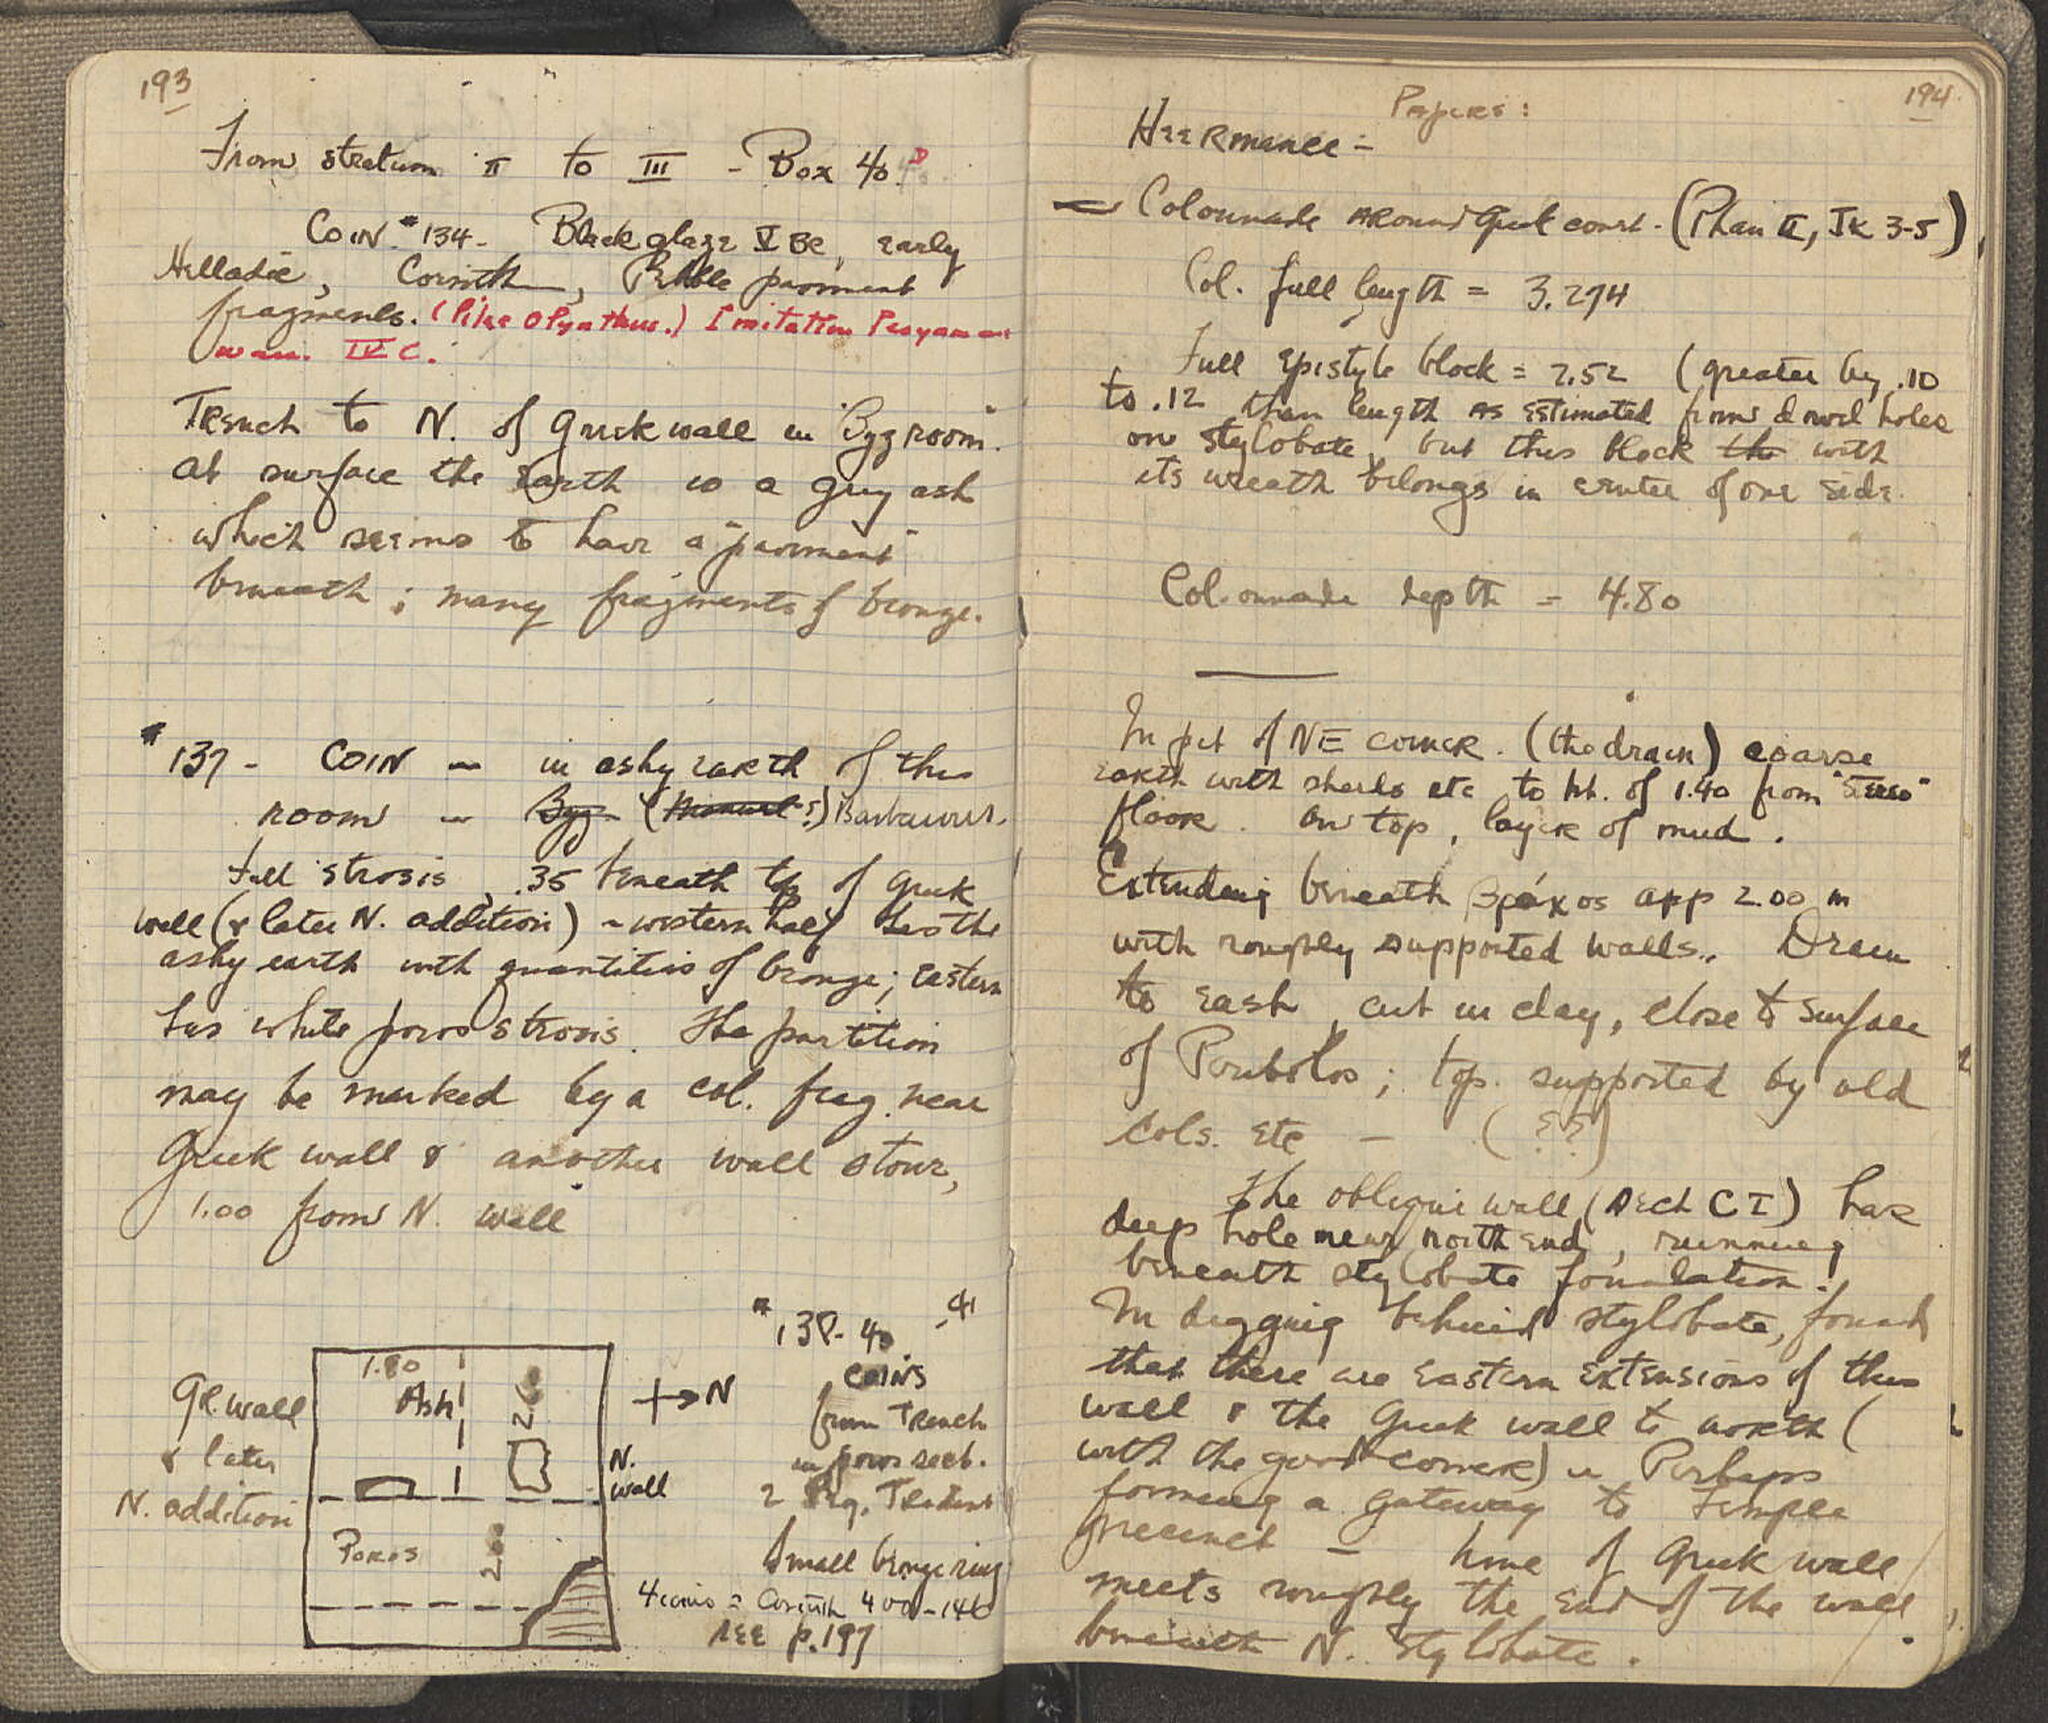 193
From stratum II to III - Box 40.D
Coin #134 - Black glaze V BC, early
Helladic, Corinth, Pebble pavement
fragments. (like Olynthus.) Imitation Pergamene
ware. IV C.
Trench to N. of Greek wall in "Byz room".
At surface the earth is a grey ash
which seems to have a "pavement"
beneath; many fragments of bronze.
#137 - COIN - in ashy earth of this
room - Byz
Full strosis, .35 beneath top of Greek
wall (& later N. addition) - western half has the
ashy earth with quantities of bronze; eastern
has white poros strosis. The partition
may be marked by a col. frag. near
Greek wall & another wall stone,
1.00 from N. wall
#138-40 -41
coins
from Trench
in poros sect.
2 Peg. Trident
Small bronze ring
4 coins = Corinth 400-146
SEE p. 197
Gr. wall
& later
N. addition
1.80
Ash
2.60
Poros
2.00
N
N.
wall
194
Papers:
Heermance =
Colonnade around Greek const. (Plan II, JK 3-5)
Col. full length = 3.274
Full epistyle block = 2.52 (greater by .10
to .12 than length as estimated from dowel holes
on stylobate, but this block the with
its wreath belongs in center of one side.
Colonnade depth = 4.80
In pit of NE corner. (the drain) coarse
earth with sherds etc to ht. of 1.40 from "stereo"
floor. On top, layer of mud.
Extending beneath βράχος app 2.00 m
with roughly supported walls. Drain
to east, cut in clay, close to surface
of Peribolos; top supported by old
cols. etc - (??)
The oblique wall (Sect C I) has
deep hole near north end, running
beneath stylobate foundation.
In digging behind stylobate, found
that there are eastern extensions of this
wall & the Greek wall to north (
with the good corner) - Perhaps
forming a gateway to temple
precinct - line of Greek wall
meets roughly the end of the wall
beneath N. stylobate.